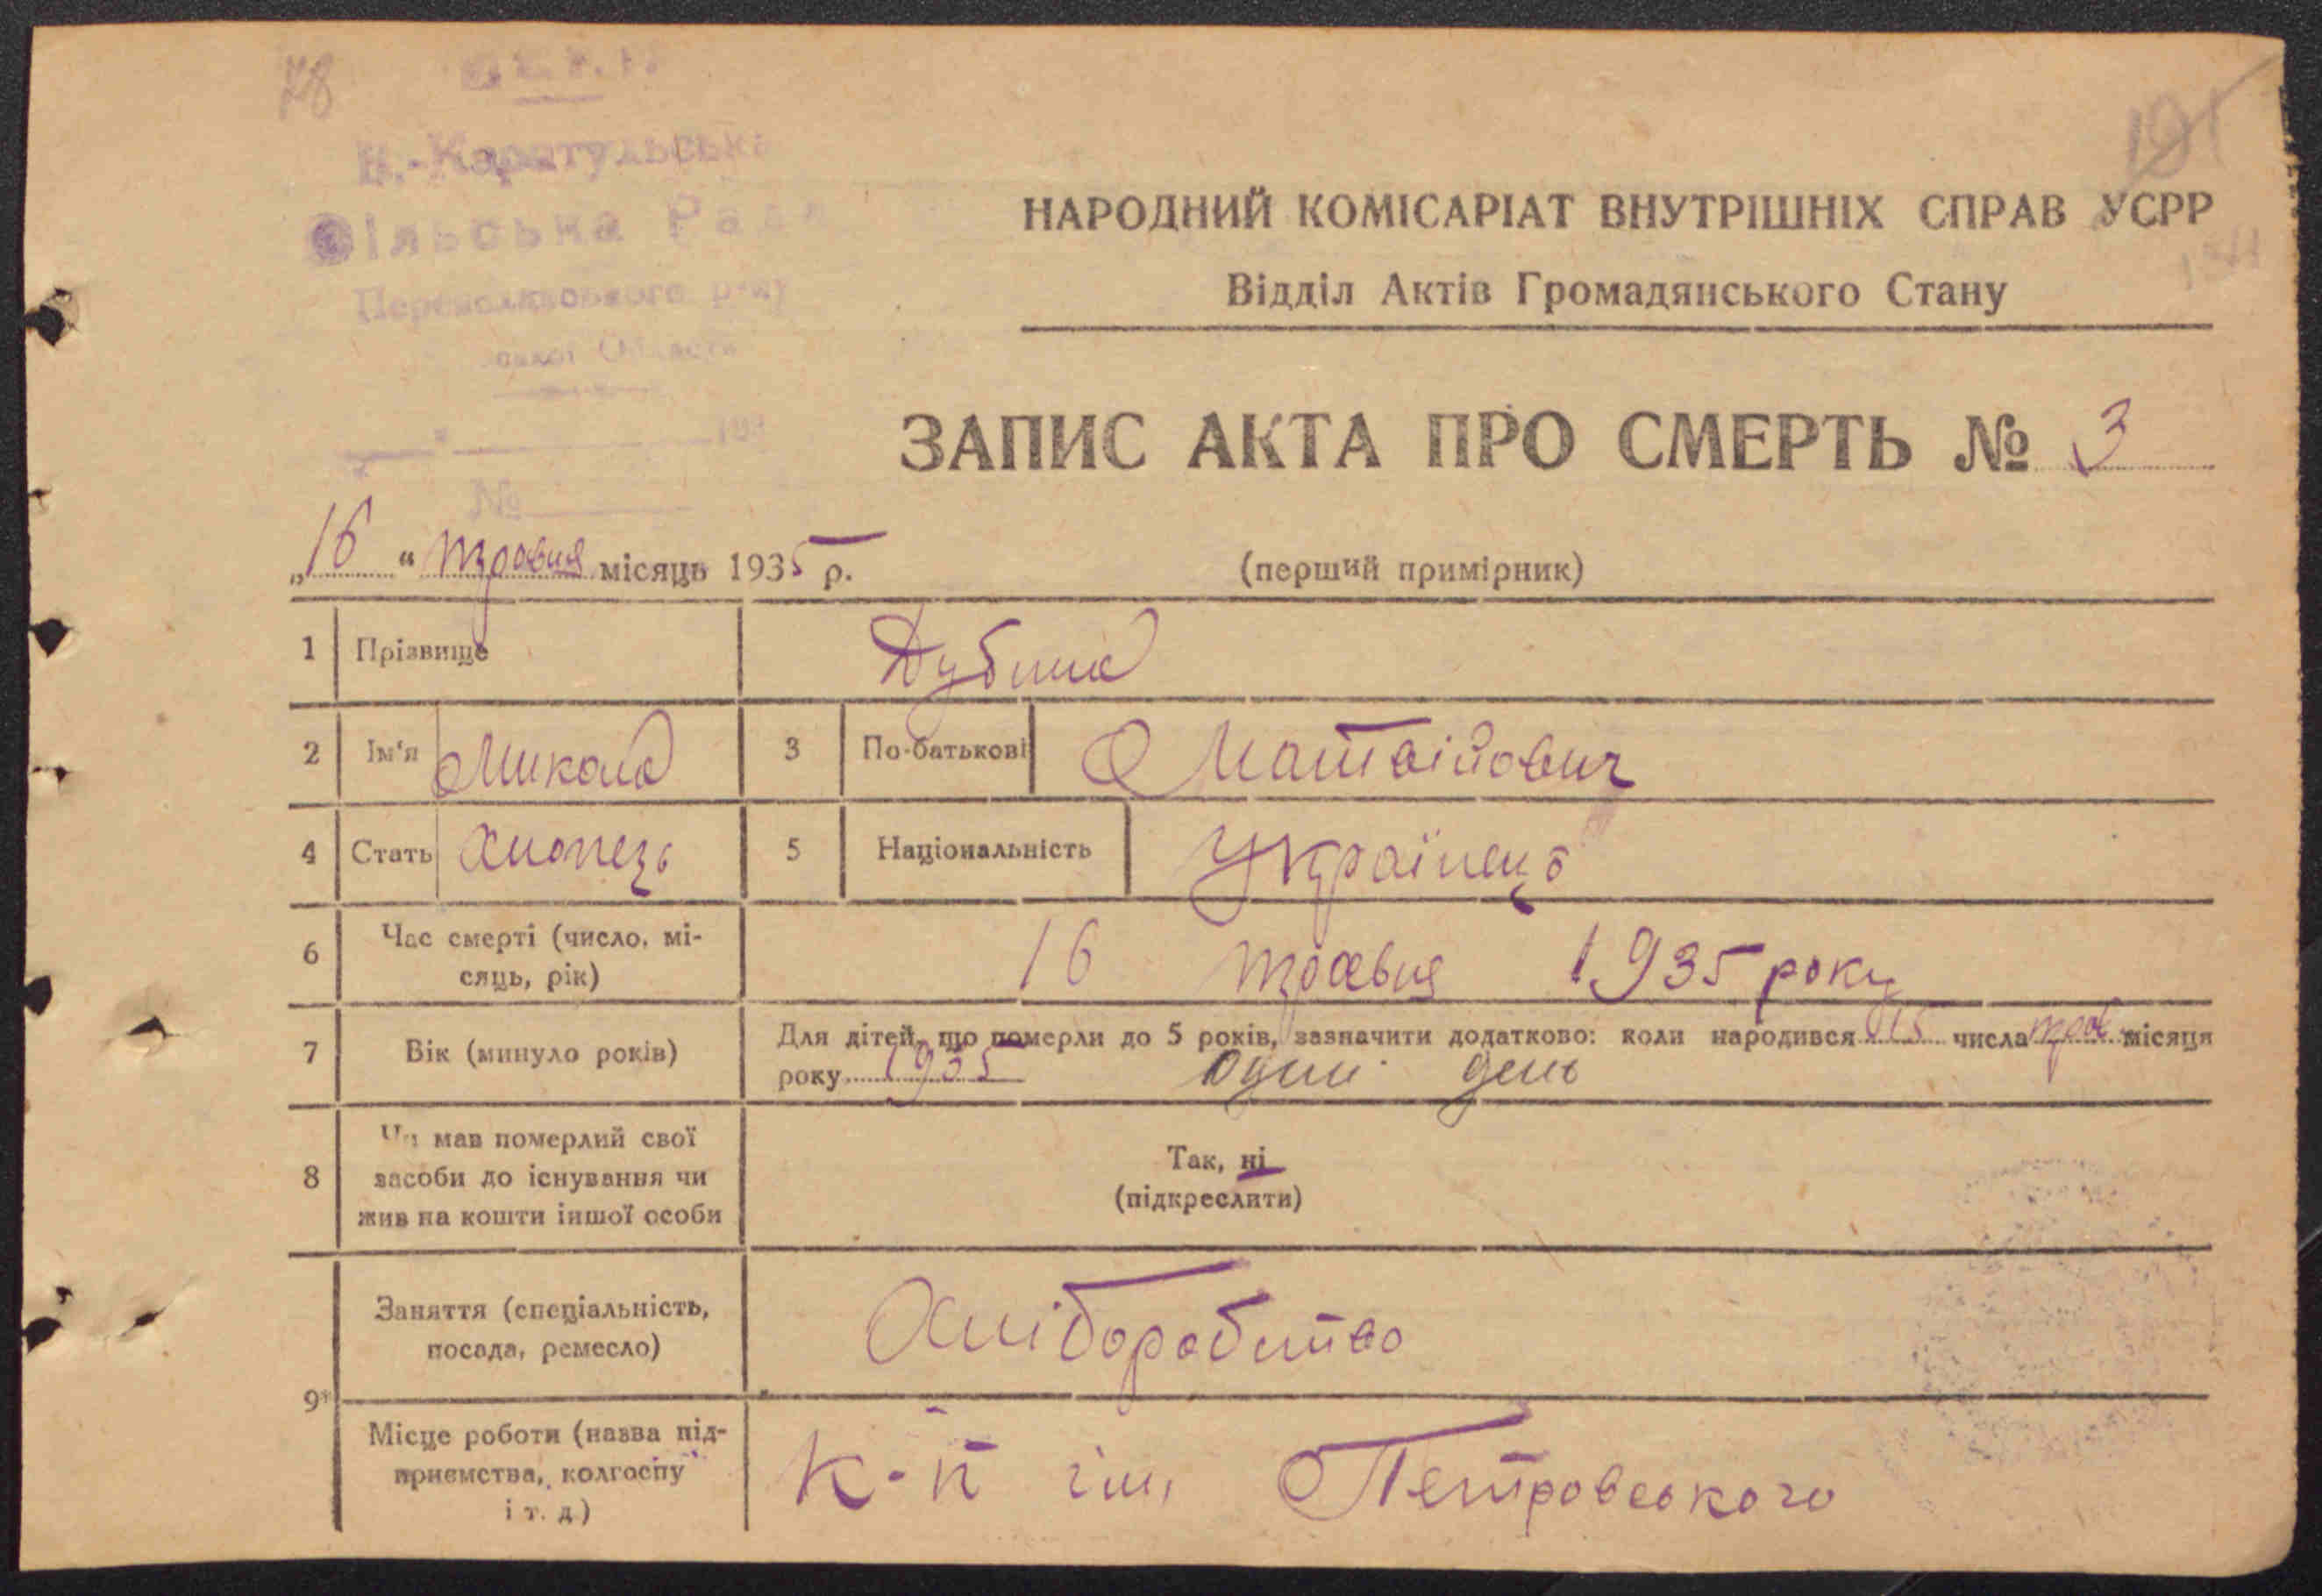 78
У.С.Р.Р.
В.-Каратульська
Сільська Рада
191
НАРОДНИЙ КОМІСАРІАТ ВНУТРІШНІХ СПРАВ УСРР
Відділ Актів Громадянського Стану
Переяславського р-ну
ської Области
ЗАПИС АКТА ПРО СМЕРТЬ № 3
„ “ 193
№
„16“ травня місяць 1935 р.
(перший примірник)
1 Прізвище Дубина
2 Ім'я Микола 3 По-батькові Матвійович
4 Стать Хлопець 5 Національність Українець
6 Час смерті (число, мі-
сяць, рік) 16 травня 1935 року
7 Вік (минуло років) Для дітей, що померли до 5 років, зазначити додатково: коли народився 15 числа трав місяця
року 1935 один день
8 Чи мав померлий свої
засоби до існування чи
жив на кошти іншої особи
Так, ні
(підкреслити)
9 Заняття (спеціальність,
посада, ремесло) Хліборобство
Місце роботи (назва під-
приємства, колгоспу
і т. д.) К-п ім. Петровського